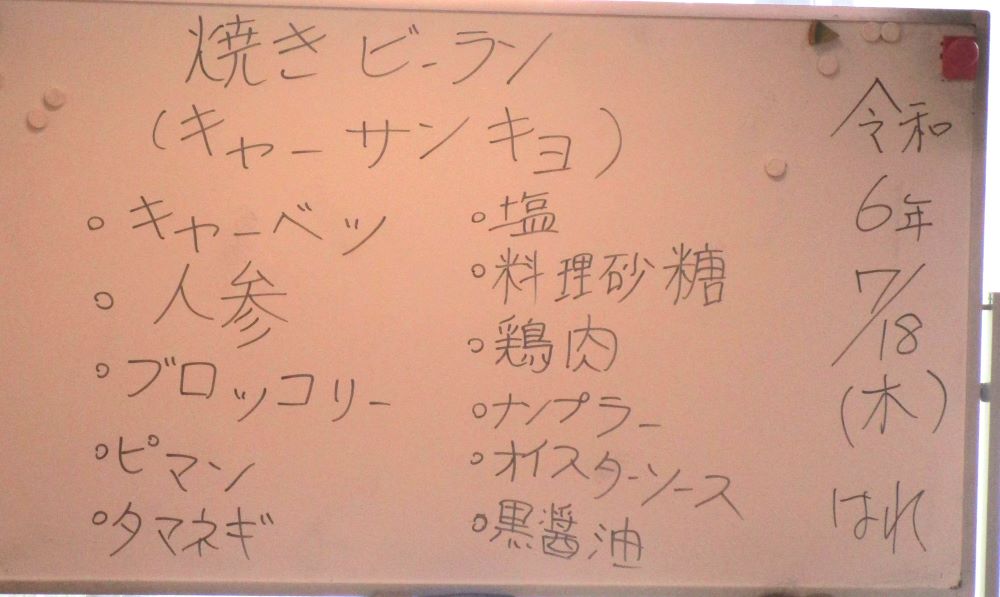 焼きビーラン
(キャーサンキョ)
。キャーベツ
。人参
。ブロッコリー
。ピマン
。タマネギ
。塩
。料理砂糖
。鶏肉
。ナンプラー
。オイスターソース
。黒醤油
令和
6年
7/18
(木)
はれ